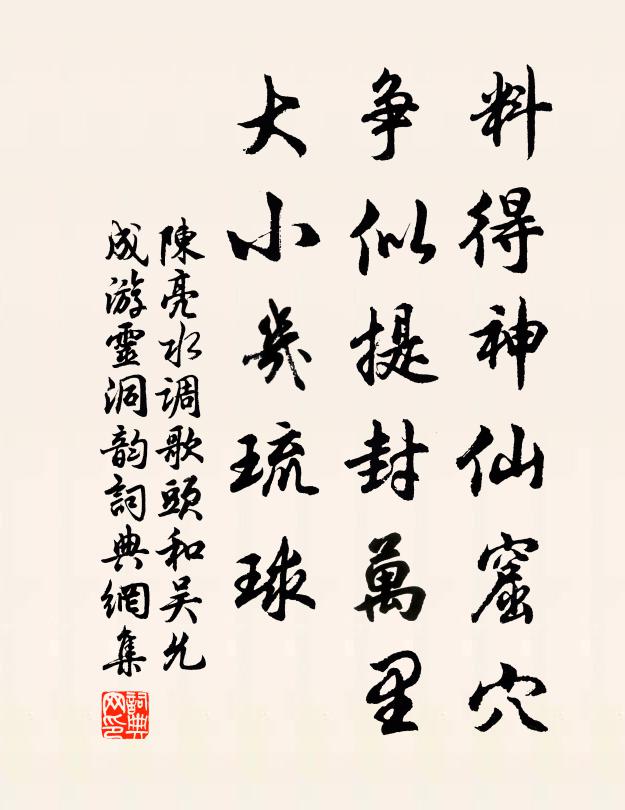 料得神仙窟穴
争似提封萬里
大小幾琉球
陳亮水调歌頭和吴允
成游靈洞韵詞典網集
詞典
网印